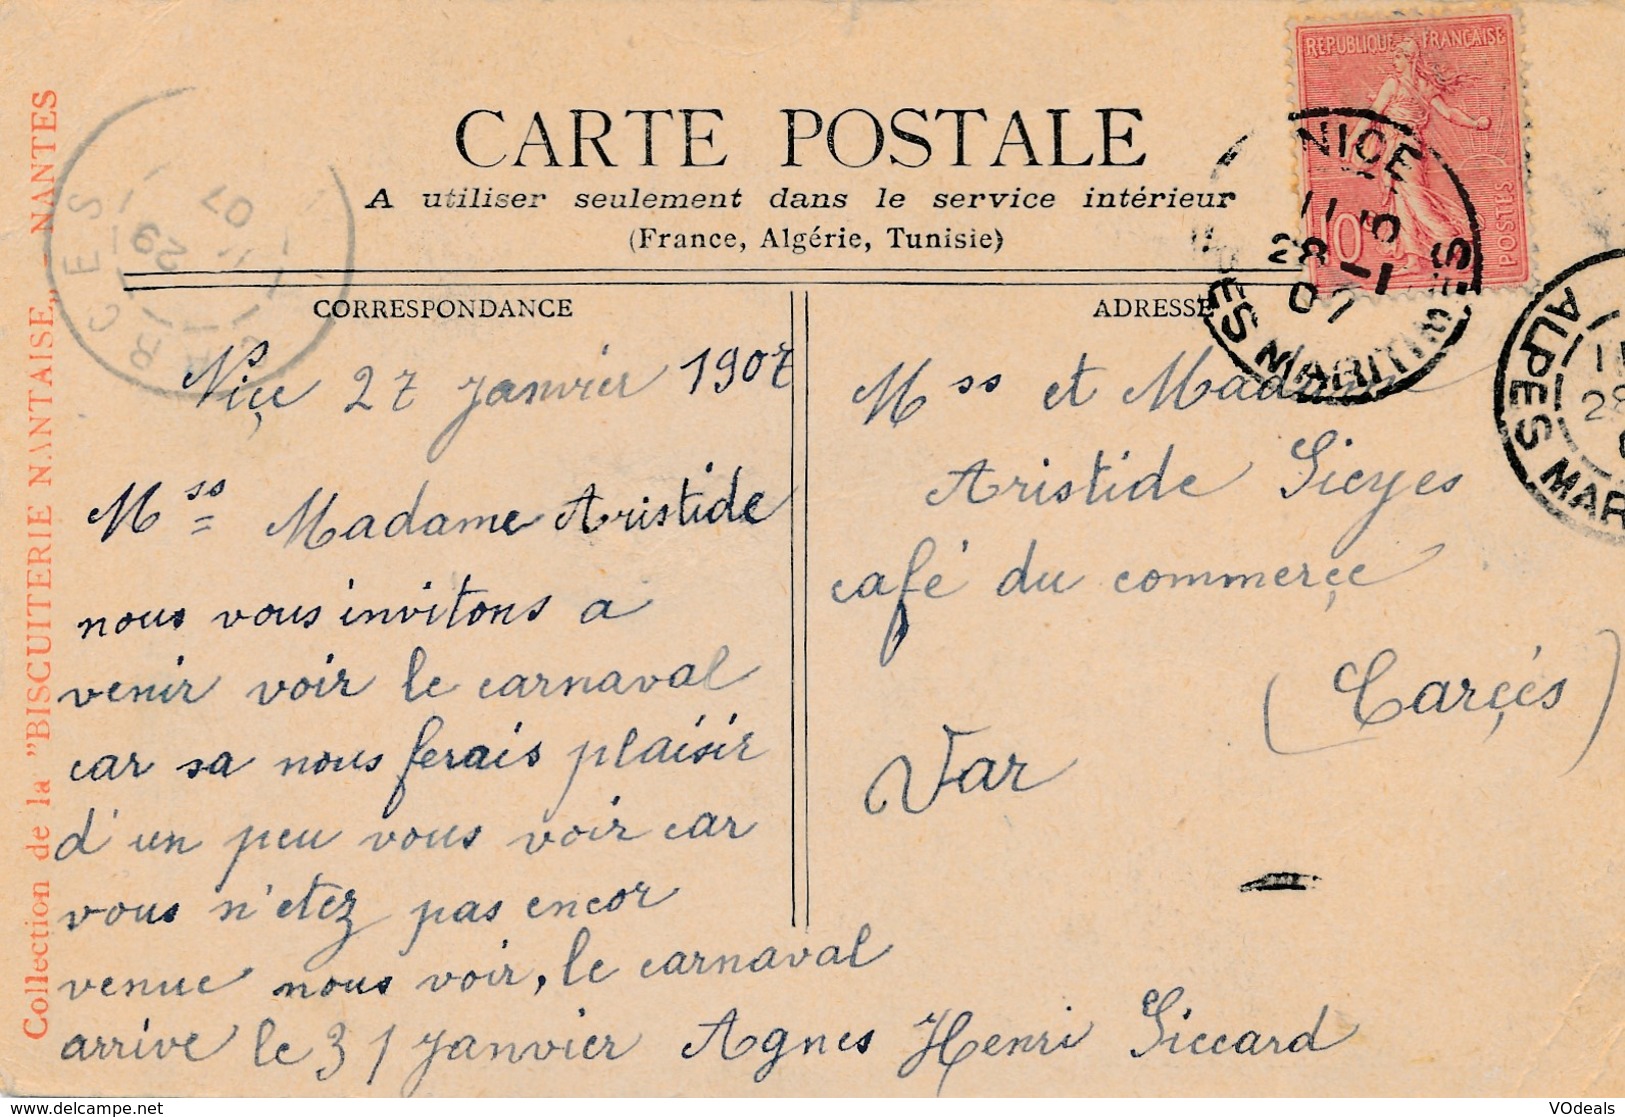 CARTE POSTALE
A utiliser seulement dans le service intérieur
(France, Algérie, Tunisie)
CORRESPONDANCE
ADRESSE
Collection de la "BISCUITERIE NANTAISE„ - NANTES
Niçe 27 Janvier 1907
Mss Madame Aristide
nous vous invitons a
venir voir le carnaval
car sa nous ferais plaisir
d'un peu vous voir car
vous n'etez pas encor
venue nous voir, le carnaval
arrive le 31 Janvier Agnes Henri Siccard
Mss et Madame
Aristide Sieyes
café du commerçe
(Carçés)
Var
REPUBLIQUE FRANÇAISE
10
POSTES
NICE
11
28 -1
07
ALPES MARITIMES
ALPES MAR
28
CARCES
29
07
VOdeals